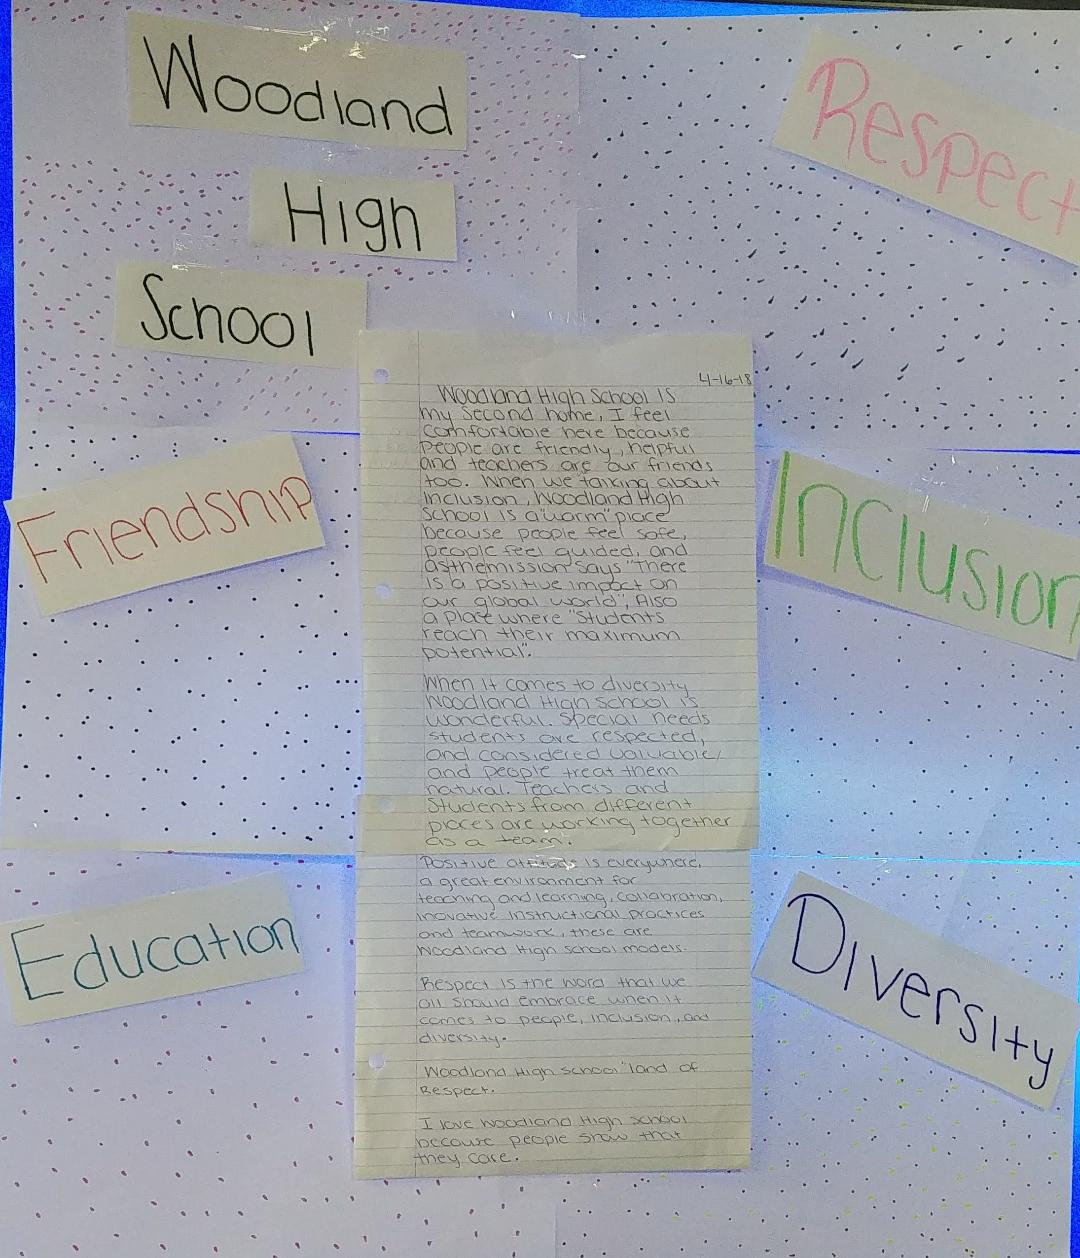 Woodland
High
School
Respect
Friendship
Inclusion
Education
Diversity
4-16-18
Woodland High School is
my second home, I feel
comfortable here because
people are friendly, helpful
and teachers are our friends
too. When we talking about
inclusion, Woodland High
School is a "warm" place
because people feel safe,
people feel guided, and
asthemission says "There
is a positive impact on
our global world", Also
a place where "Students
reach their maximum
potential".
When it comes to diversity
Woodland High school is
wonderful. Special needs
students are respected,
and considered valuable,
and people treat them
natural. Teachers and
Students from different
places are working together
as a team.
Positive attitude is everywhere,
a great environment for
teaching and learning, collabration,
inovative instructional practices
and teamwork, these are
Woodland High school models.
Respect is the word that we
all should embrace when it
comes to people, inclusion, and
diversity.
Woodland High school "land of
Respect.
I love Woodland High school
because people show that
they care.